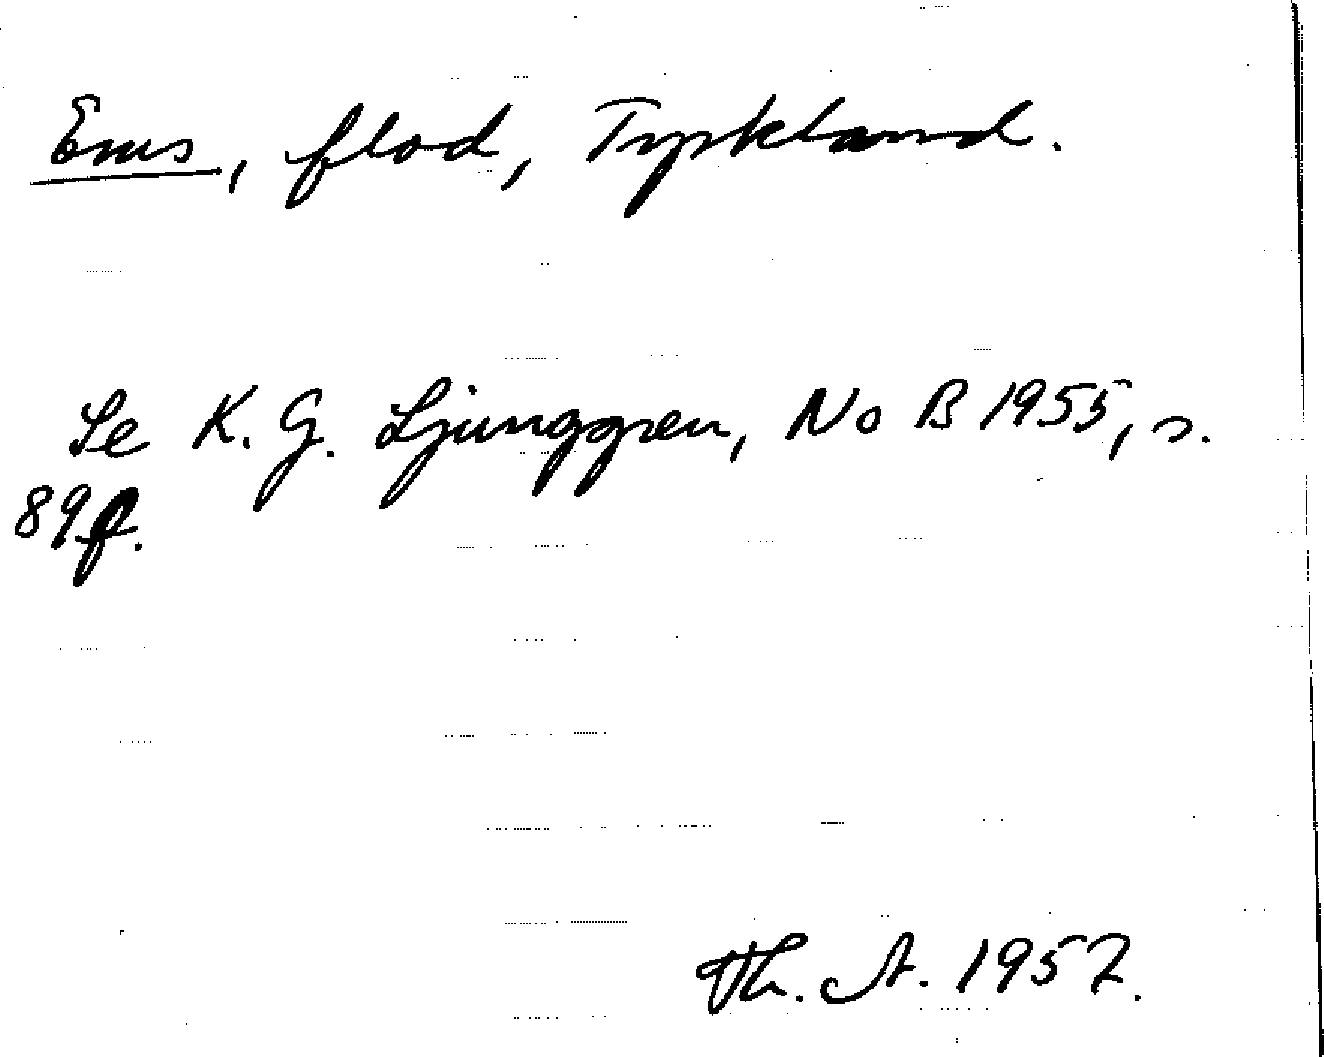 Ems, flod, Tyskland.
Se K. G. Ljunggren, No B 1955, s.
89 f.
Th. A. 1957.